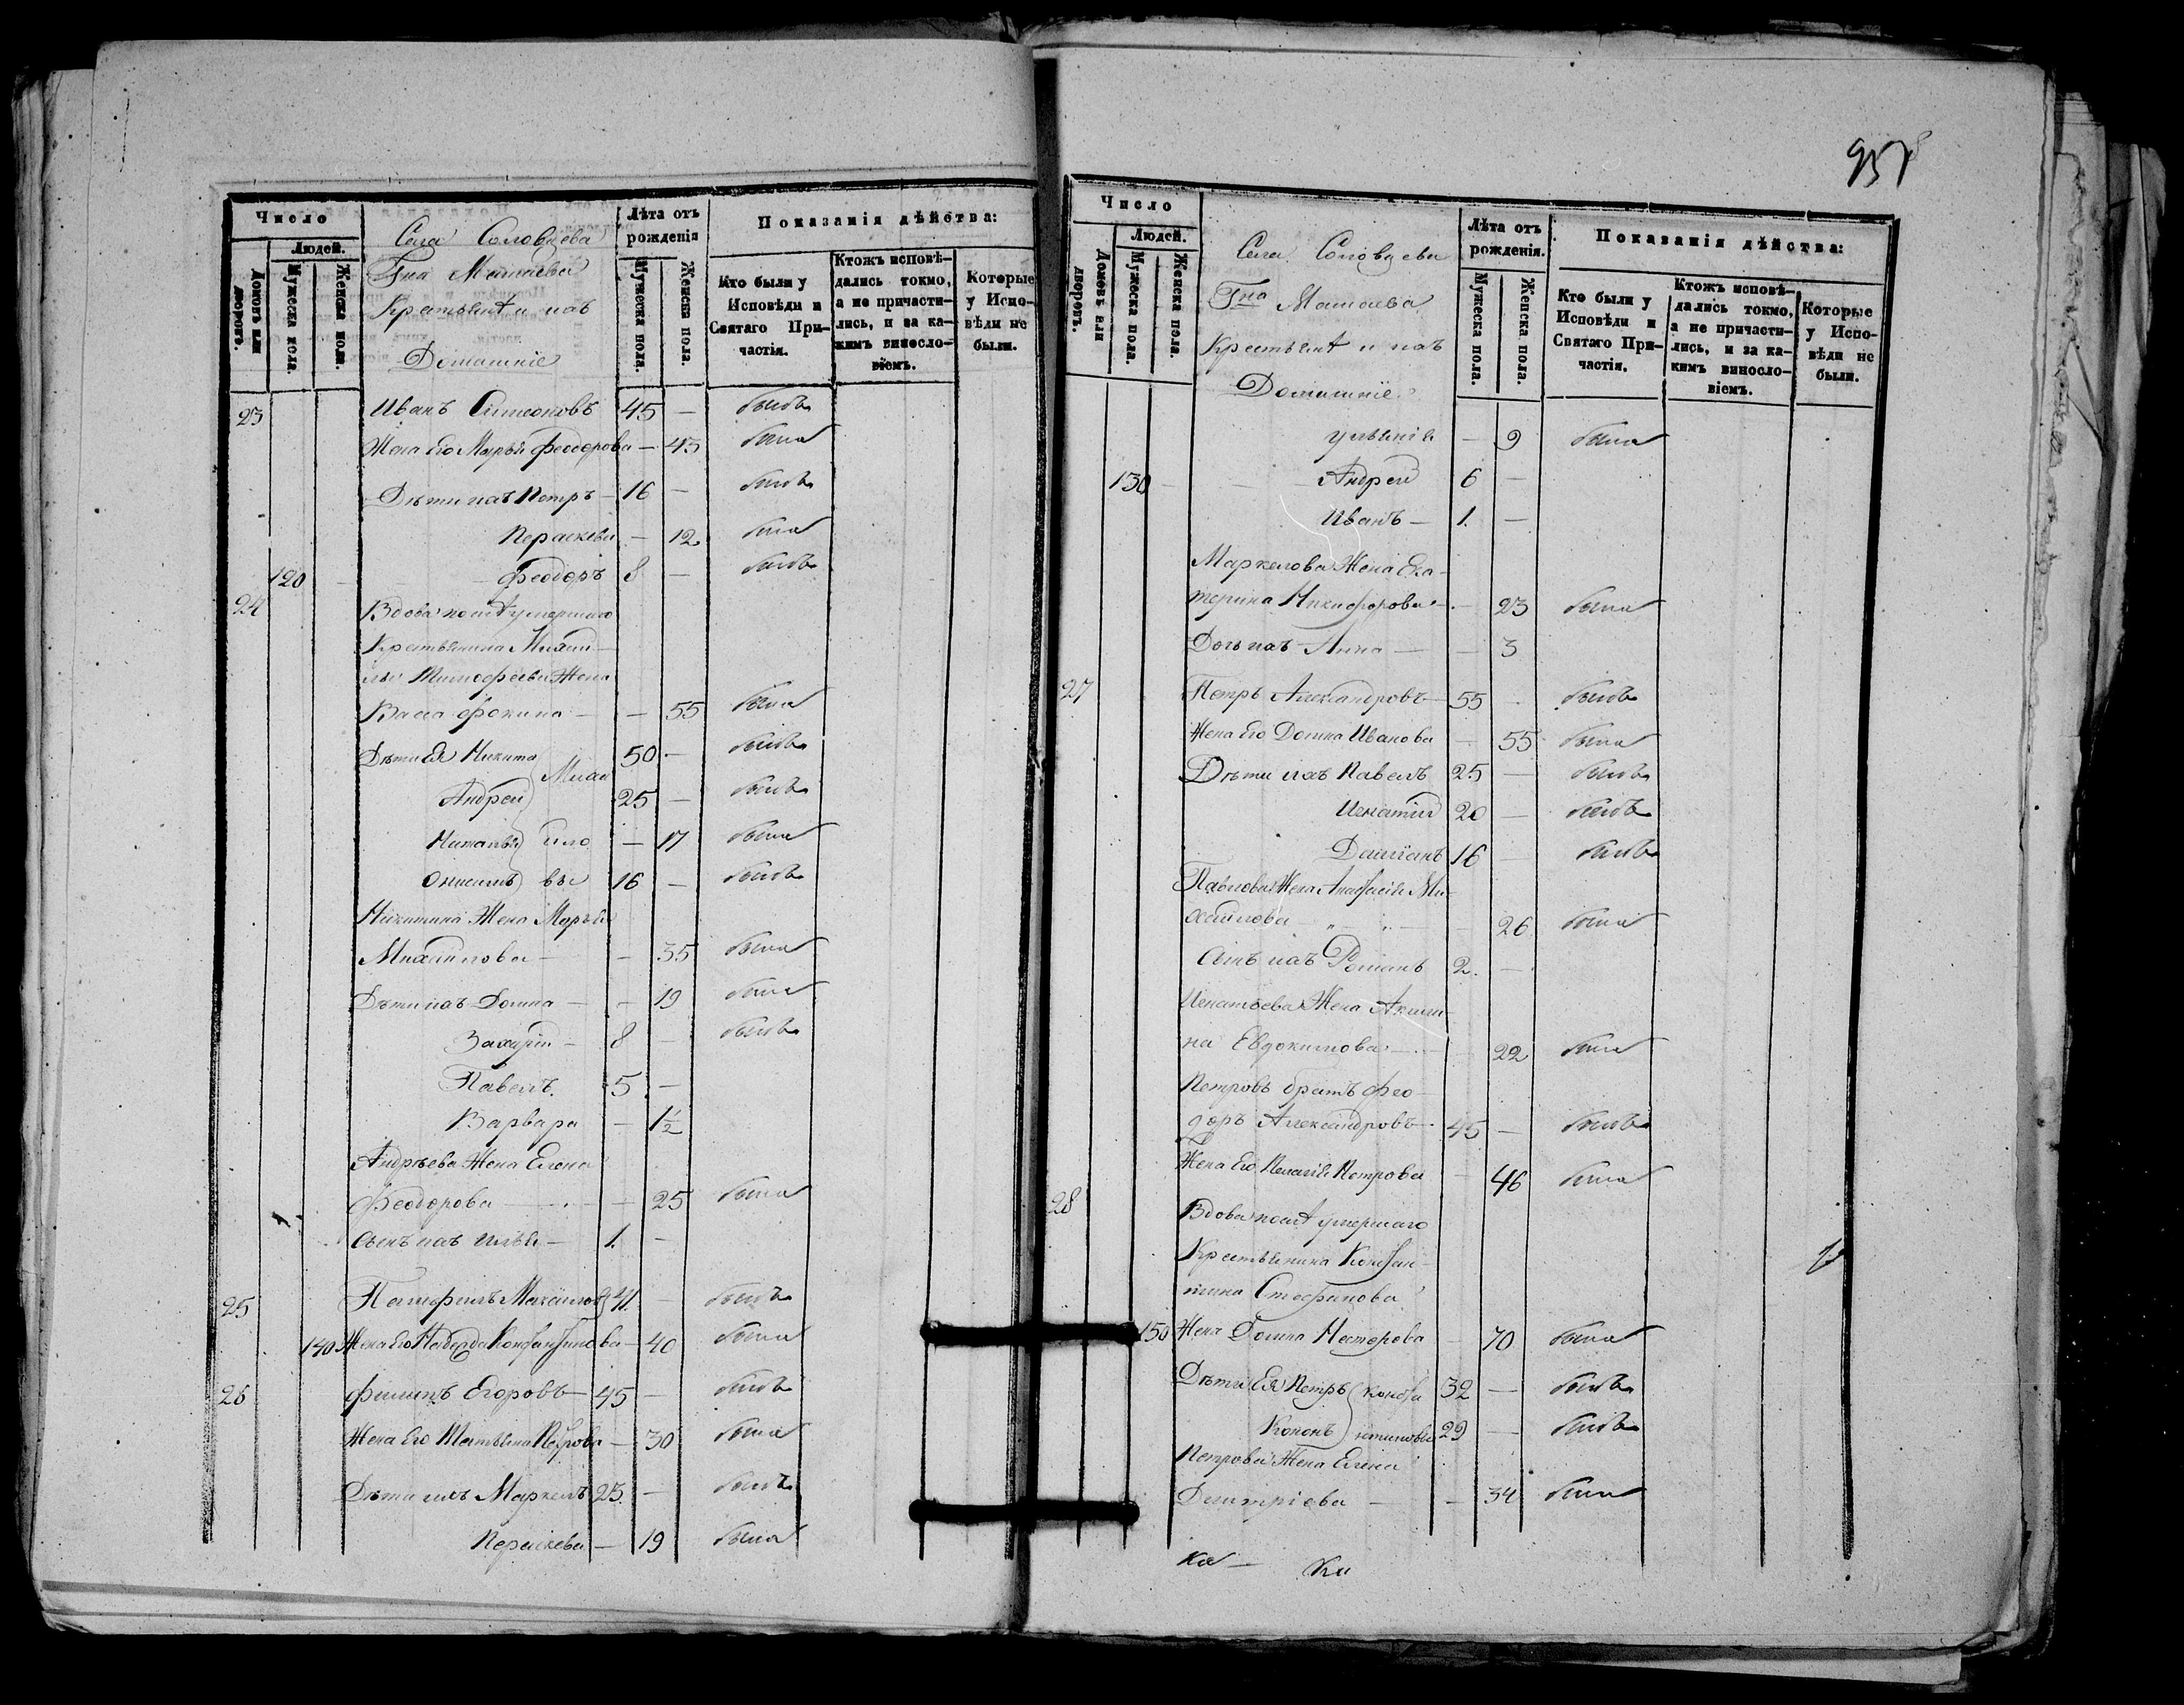 Число
Людей.
Домовъ или дворовъ.
Мужеска пола.
Женска пола.
Села
Домашніе
Лѣта отъ рожденія
Мужеска пола.
Женска пола.
Показанія дѣйства:
Кто были у Исповѣди и Святаго Причастія.
Ктожъ исповѣдались токмо, а не причастились, и за какимъ винословіемъ.
Которые у Исповѣди не были.
23 Иванъ Симеоновъ 45 — былъ
Жена Его Марья Феодорова — 45 была
Дѣти ихъ Петръ — 16 — былъ
Параскева — 12 была
120 Феодоръ 8 — былъ
24 Вдова послѣ умершаго
Крестьянина Михаи-
ла Тимофеева Жена
Васса Фокина — — 55 была
Дѣти Ея Никита 50 — былъ
Андрей 25 — былъ
Миха
Наталья — 17 была
йло
Онисимъ 16 — былъ
вы
Никитина Жена Марья
Михайлова — — 35 была
Дѣти ихъ Домна — — 19 была
Захарій — 8 — былъ
Павелъ 5 —
Варвара — 1½
Андреева Жена Елена
Феодорова — — 25 была
Сынъ ихъ Илья — 1. —
25 Памфилъ 41 — былъ
140 Жена Его Надежда Константинова — 40 была
26 Филипъ Егоровъ — 45 — былъ
Жена Его Татьяна Петрова — 30 была
Дѣти ихъ Маркелъ 23 — былъ
Параскева — 19 была
957
Число
Людей.
Домовъ или дворовъ.
Мужеска пола.
Женска пола.
Села
Гна
Крестьянѣ и ихъ
Домашніе
Лѣта отъ рожденія.
Мужеска пола.
Женска пола.
Показанія дѣйства:
Кто были у Исповѣди и Святаго Причастія.
Ктожъ исповѣдались токмо, а не причастились, и за какимъ винословіемъ.
Которые у Исповѣди не были.
Ульянія — 9 была
130 Андрей 6 —
Иванъ — 1. —
Маркелова Жена Ека-
терина Никифорова — 23 была
Дочь ихъ Анна — — 3
27 Петръ Александровъ — 55 - былъ
Жена Его Домна Иванова — 55 была
Дѣти ихъ Павелъ 25 — былъ
Игнатій 20 — былъ
Даміанъ 16 — былъ
Павлова Жена Анастасія Ми-
хайлова — 26 была
Сынъ ихъ Романъ 2. —
Игнатьева Жена Акили-
на Евдокимова — 22 была
Петровъ братъ Фео-
доръ Александровъ — 45 — былъ
Жена Его Пелагія Петрова — 46 была
28 Вдова послѣ умершаго
Крестьянина Констан-
тина Стефанова
150 Жена Домна Нестерова — 70 была
Дѣти Ея Петръ 32 — былъ
Конста
Кононъ 29 — былъ
нтиновы
Петрова Жена Елена
Дмитріева — — 34 была